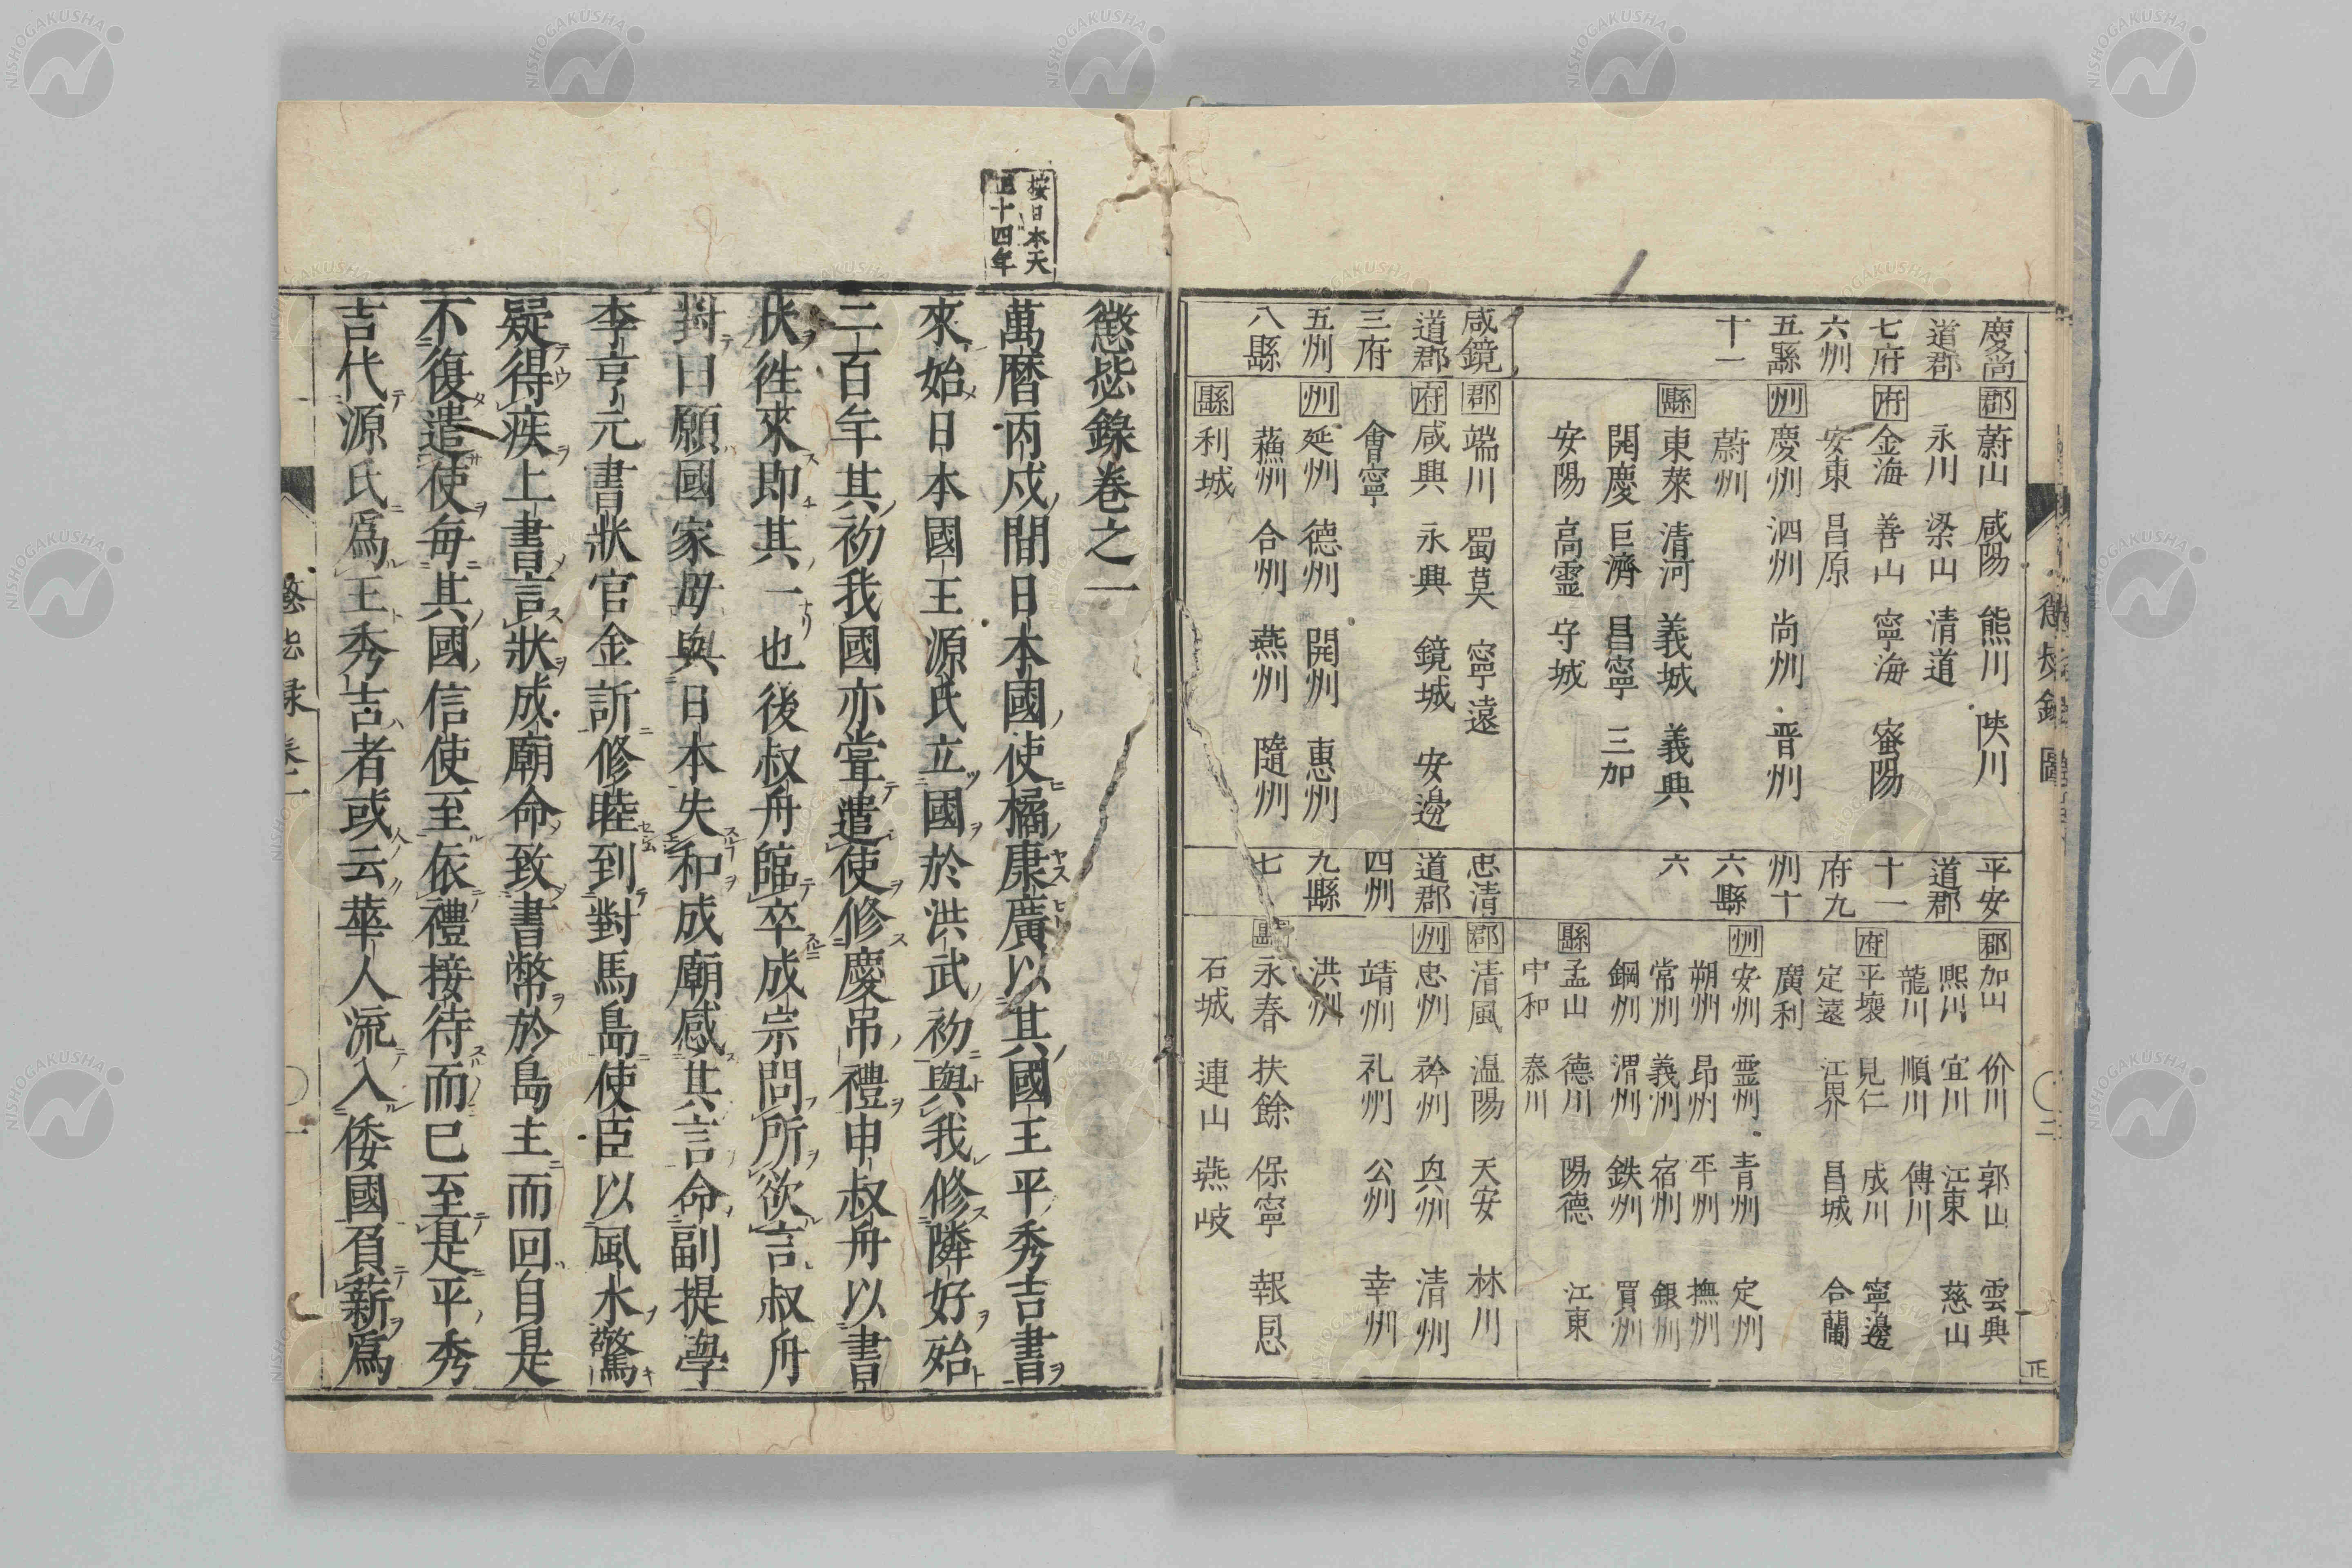 慶尚道郡七府六州五縣十一
郡 蔚山 咸陽 熊川 陜川
永川 梁山 清道
府 金海 善山 寧海 蜜陽
安東 昌原
州 慶州 泗州 尚州 晋州
蔚州
縣 東萊 清河 義城 義興
開慶 巨濟 昌寧 三加
安陽 高霊 守城
咸鏡道郡三府五州八縣
郡 端川 蜀莫 寧遠
府 咸興 永興 鏡城 安邊
會寧
州 延州 德州 開州 惠州
蘓州 合州 燕州 隨州
縣 利城
平安道郡十一府九州十六縣六
郡 加山 价川 郭山 雲興
熙川 宜川 江東 慈山
龍川 順川 傳川
府 平壤 見仁 成川 寧邊
定遠 江界 昌城 合蘭
廣利
州 安州 霊州 青州 定州
朔州 昂州 平州 撫州
常州 義州 宿州 銀州
鋼州 渭州 鉄州 買州
縣 孟山 德川 陽德 江東
中和 泰川
忠清道郡四州九縣七
郡 清風 温陽 天安 林川
州 忠州 衿州 與州 清州
靖州 礼州 公州 幸州
洪州
縣 永春 扶餘 保寧 報恩
石城 連山 燕岐
按日本天
正十四年
懲毖錄卷之一
萬曆丙戍間日本國使橘康廣以其國王平秀吉書
來始日本國王源氏立國於洪武初與我修隣好殆
二百年其初我國亦甞遣使修慶吊禮申叔舟以書
狀徃來即其一也後叔舟臨卒成宗問所欲言叔舟
對曰願國家毋與日本失和成廟感其言命副提學
李亨元書狀官金訢修睦到對馬島使臣以風水驚
疑得疾上書言狀成廟命致書幣於島主而回自是
不復遣使每其國信使至依禮接待而已至是平秀
吉代源氏爲王秀吉者或云華人流入倭國負薪爲